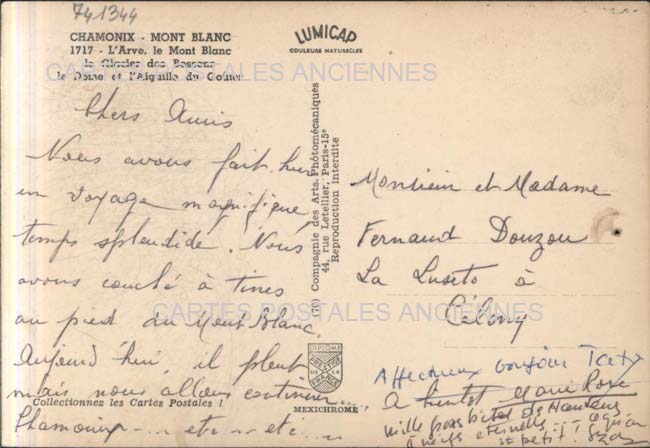 741344
CHAMONIX - MONT BLANC
1717 - L'Arve, le Mont Blanc
le Glacier des Bossons
le Dôme et l'Aiguille du Gouter
LUMICAP
COULEURS NATURELLES
CARTES POSTALES ANCIENNES
Chers Amis
Nous avons fait hier
un voyage magnifique,
temps splendide. Nous
avons couché à Tines
au pied du Mont Blanc.
Aujourd'hui, il pleut
mais nous allons continuer
Chamonix - etc - etc
(70) Compagnie des Arts Photomécaniques
44, rue Letellier, Paris-15e
Reproduction interdite
Monsieur et Madame
Fernand Douzou
La Luseto à
CARTES POSTALES ANCIENNES
DIPLOME
PRESTIGE
DE LA
FRANCE
MEXICHROME
Collectionnez les Cartes Postales !
Affectueux bonjour
A bientôt Marie Rose
mille gros
à
et petit